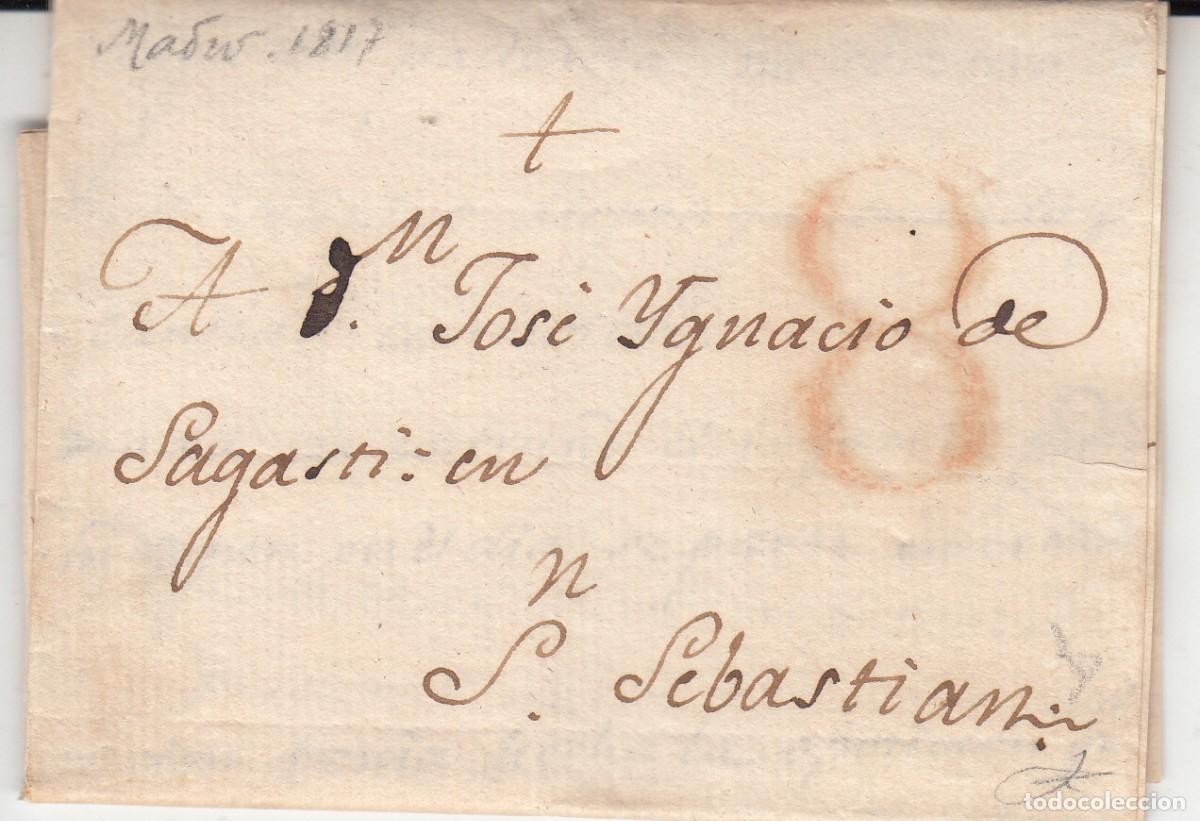 Madrid. 1817
+
8
A Dⁿ. José Ygnacio de
Sagasti: en
Sⁿ. Sebastian
todocoleccion